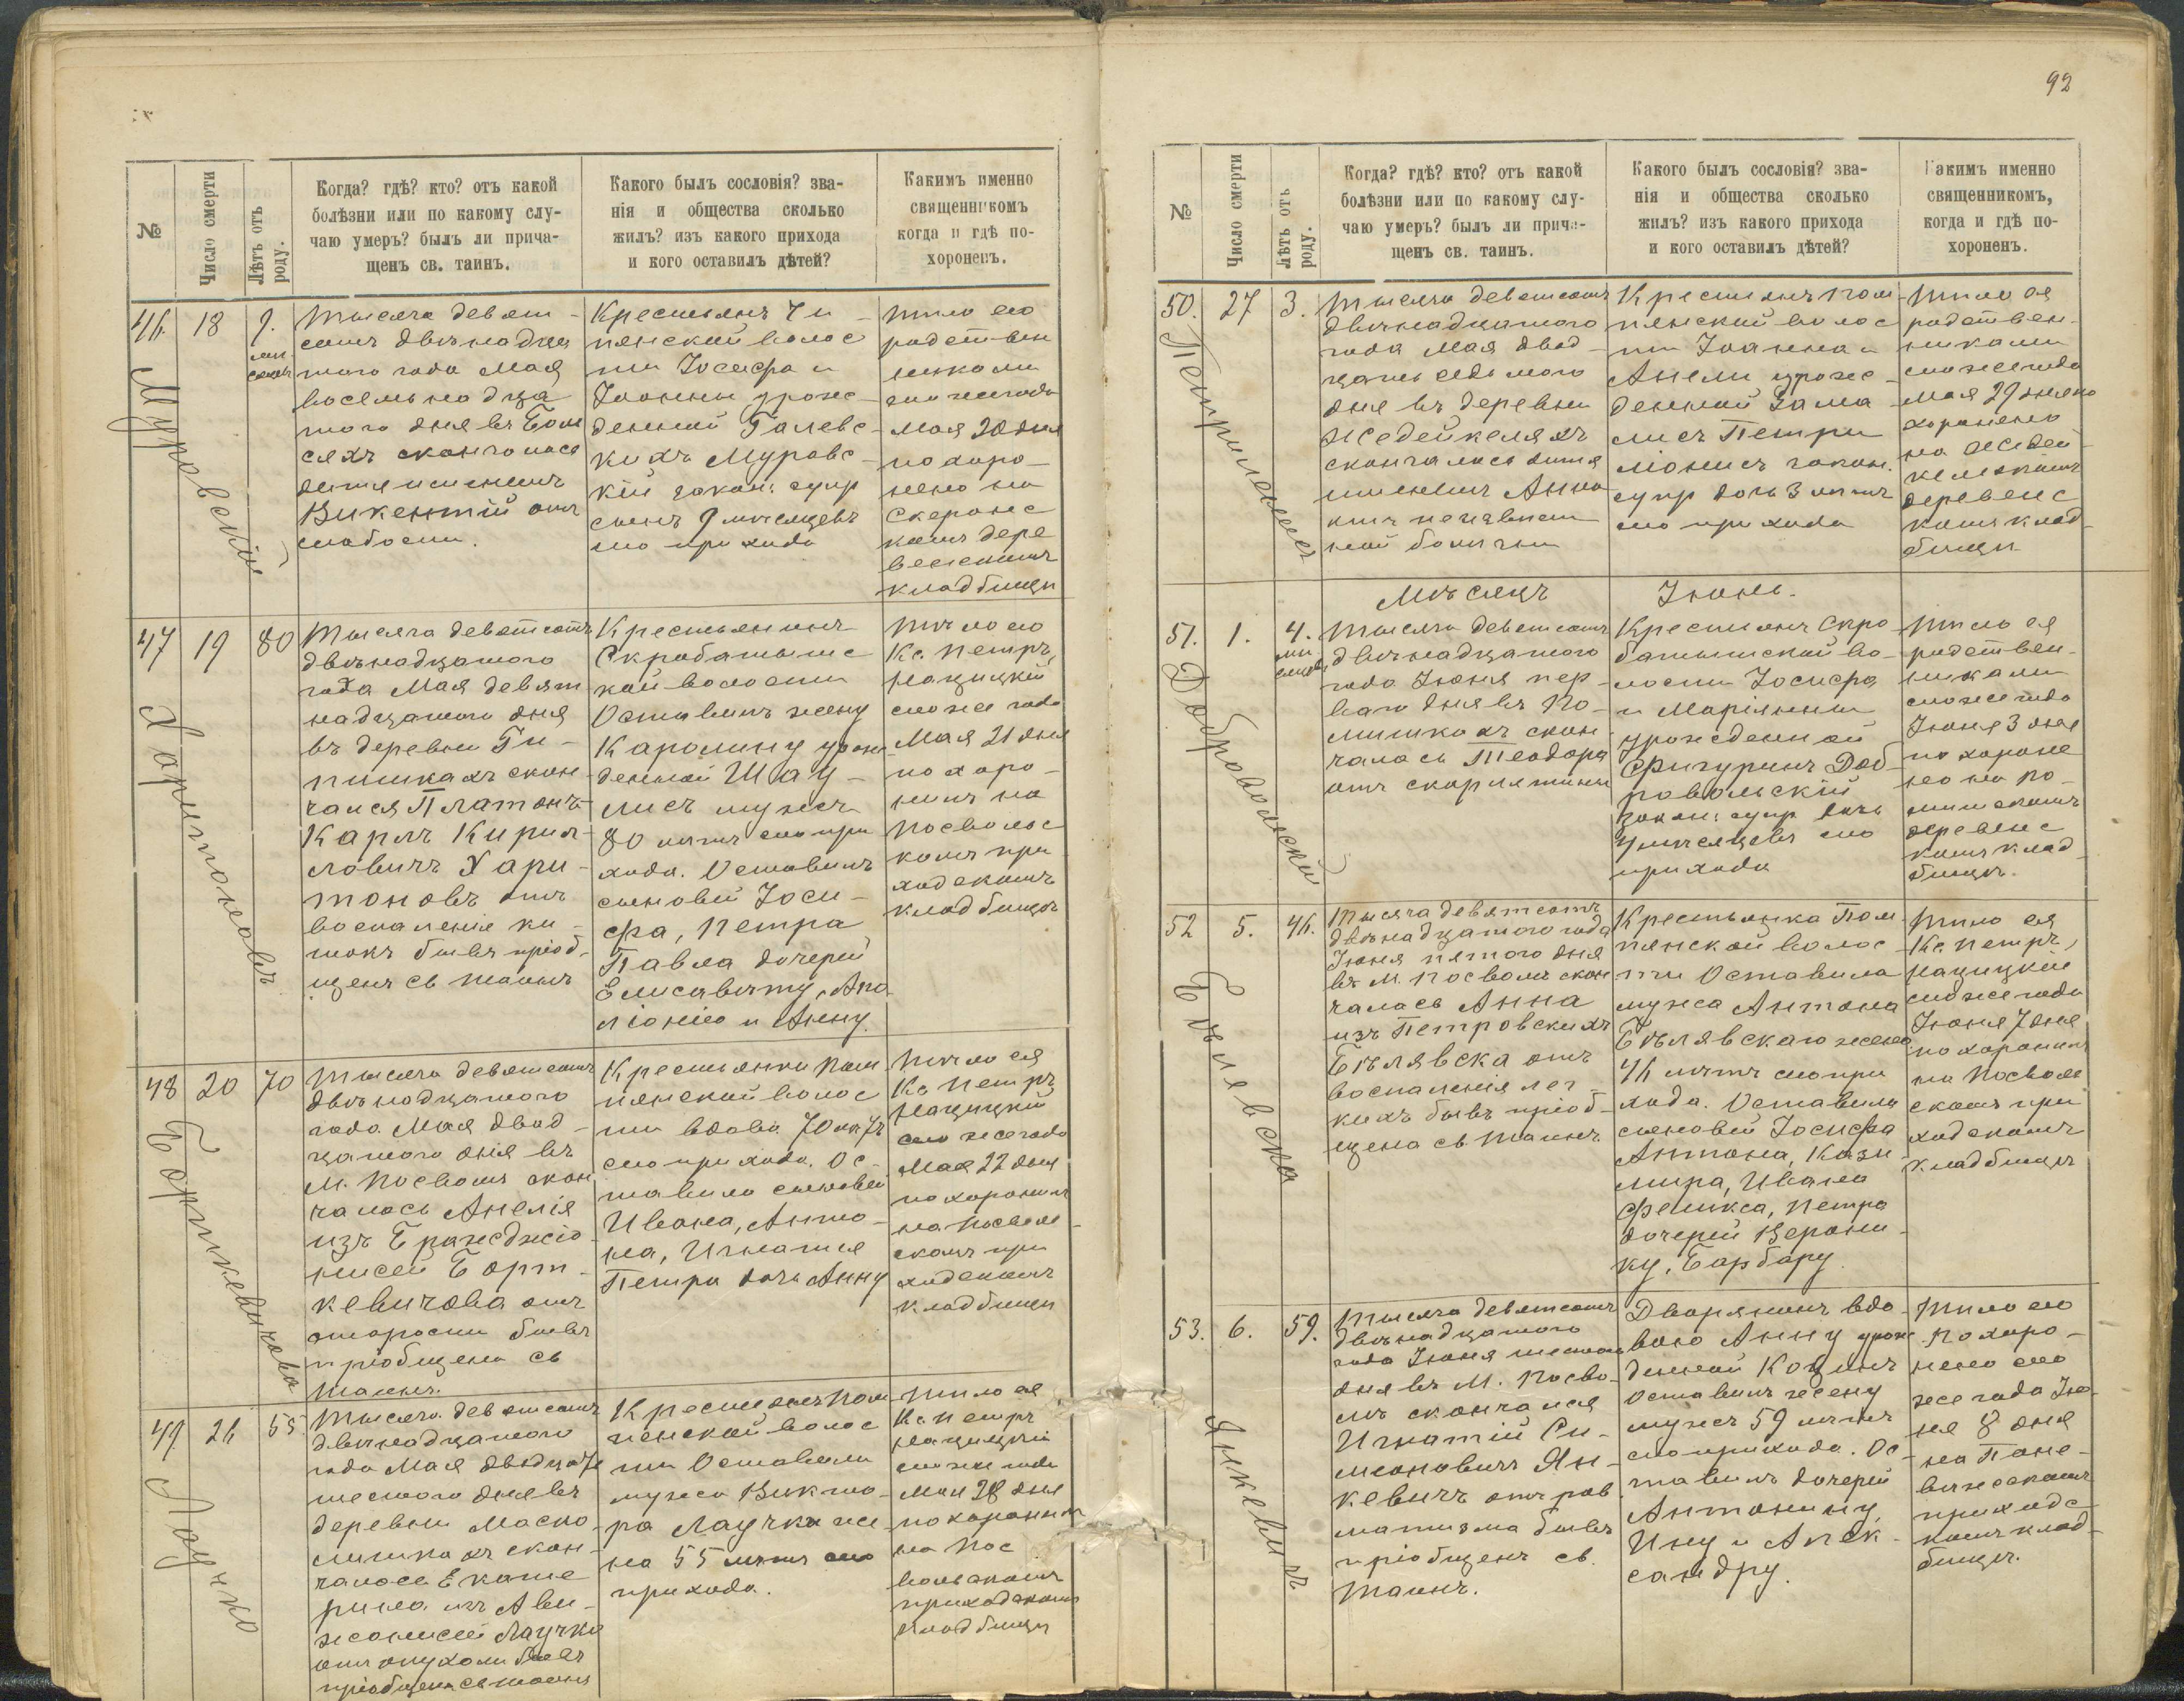 92
№
Число смерти
Лѣтъ отъ
роду.
Когда? гдѣ? кто? отъ какой
болѣзни или по какому слу-
чаю умеръ? былъ ли прича-
щенъ св. таинъ.
Какого былъ сословія? зва-
нія и общества сколько
жилъ? изъ какого прихода
и кого оставилъ дѣтей?
Какимъ именно
священникомъ
когда и гдѣ по-
хороненъ.
46
18
9.
Муровскій
Тысяча девят-
сотъ двѣнадца
таго года Мая
восемьнадца
таго дня въ
скончалося
дитя именемъ
Викентій отъ
слабости.
Крестьянъ
волос
ти Іосифа и
Іоанны урож-
денной Галевс-
кихъ Муровс-
кій закон. супр
сынъ 9 мѣсяцевъ
сего прихода
Тѣло его
родствен
никами
сего же года
Мая 20 дня
похоро-
нено на
Скеронс
комъ дере
венскомъ
кладбищѣ
47
19
80
Харитоновъ
Тысяча девятсотъ
двѣнадцатого
года Мая девят
надцатого дня
въ деревни Ги-
пишкахъ скон
чался Платонъ
Карлъ Кирил-
ловичъ Хари-
тоновъ отъ
воспаленіе ки-
шокъ бывъ пріоб-
щенъ св таинъ
Крестьянинъ
Скробатышс
кой волости
Оставилъ жену
Каролину урож
денной Шау-
лисъ мужъ
80 лѣтъ сего при
хода. Оставилъ
сыновей Іоси-
фа, Петра
Павла дочерей
Елисавету, Апо
лонію и Анну.
Тѣло его
Кс. Петръ
Нацицкій
сего же года
Мая 21 дня
похоро-
нилъ на
Посвольс
комъ при
ходскомъ
кладбищѣ
48
20
70
Борткевичова
Тысяча девятсотъ
двѣнадцатого
года Мая двад-
цатого дня въ
М. Посволѣ скон
чалась Анелія
изъ Бразджіо-
нисей Борт-
кевичова отъ
старости бывъ
пріобщена св
таинъ.
Крестьянки Пом
пянской волос
ти вдова 70 лѣтъ
сего прихода. Ос-
тавила сыновей
Ивана, Анто-
на, Игнатія
Петра дочь Анну
Тѣло ея
Кс Петръ
Нацицкій
сего же года
Мая 22 дня
похоронилъ
на Посволь-
скомъ при
ходскомъ
кладбищѣ
49
26
55.
Лаучко
Тысяча девятсотъ
двѣнадцатого
года Мая двадцать
шестого дня въ
деревни Маско
лишкахъ скон-
чалося Екате
рина изъ Ави-
жонисей Лаучко
отъ опухоли бывъ
пріобщена св таинъ
Крестьянъ Пом
пянской волос
ти Оставила
мужа Викто-
ра Лаучко же
на 55 лѣтъ сего
прихода.
Тѣло ея
Кс Петръ
Нацицкій
сего же года
Мая 28 дня
похоронилъ
на Пос
вольскомъ
приходскомъ
кладбищѣ
№
Число смерти
Лѣтъ отъ
роду.
Когда? гдѣ? кто? отъ какой
болѣзни или по какому слу-
чаю умеръ? былъ ли прича-
щенъ св. таинъ.
Какого былъ сословія? зва-
нія и общества сколько
жилъ? изъ какого прихода
и кого оставилъ дѣтей?
Какимъ именно
священникомъ,
когда и гдѣ по-
хороненъ.
50.
27
3.
Тысяча девятсотъ
двѣнадцатого
года Мая двад-
цать седьмого
дня въ деревни
Жедейкеляхъ
скончалась дитя
именемъ Анна
отъ неизвѣст
ной болѣзни
Крестьянъ Пом
пянской волос
ти Іоанна и
Анели урож-
денной Зама
лисъ Петри
ліонисъ закон.
супр дочь 3 лѣтъ
сего прихода
Тѣло ея
родствен-
никами
сего же года
Мая 29 дня по
хоронено
на Жедей
кельскомъ
деревенс
комъ клад-
бищѣ
Мѣсяцъ Іюнь.
51.
1.
4.
Добровольскій
Тысяча девятсотъ
двѣнадцатого
года Іюня пер-
ваго дня въ По-
лишкахъ скон-
чалась Теодора
отъ скарлятины
Крестьянъ Скро
батышской во-
лости Іосифа
и Маріянны
урожденной
Фигуринъ Доб-
ровольскій
закон. супр дочь
4 мѣсяцевъ сего
прихода
Тѣло ея
родствен-
никами
сего же года
Іюня 3 дня
похороне
но на По-
лишскомъ
деревенс
комъ клад-
бищѣ.
52
5.
46.
Бѣлевска
Тысяча девятсотъ
двѣнадцатого года
Іюня пятого дня
въ М. Посволѣ скон
чалась Анна
изъ Петровскихъ
Бѣлявска отъ
воспаленія лег-
кихъ бывъ пріоб-
щена св таинъ
Крестьянка Пом
пянской волос
ти Оставила
мужа Антона
Бѣлявскаго жена
46 лѣтъ сего при
хода. Оставила
сыновей Іосифа
Антона, Кази
мира, Ивана
Феликса, Петра
дочерей Верони-
ку, Барбару.
Тѣло ея
Кс Петръ
Нацицкій
сего же года
Іюня 7 дня
похоронилъ
на Посволь
скомъ при
ходскомъ
кладбищѣ
53.
6.
59.
Янкевичъ
Тысяча девятсотъ
двѣнадцатого
года Іюня шестого
дня въ М. Посво-
лѣ скончался
Игнатій Си-
меоновичъ Ян-
кевичъ отъ рев
матизма бывъ
пріобщенъ св.
таинъ.
Дворянинъ вдо-
вою Анну урож
денной Коцинъ
Оставилъ жену
мужъ 59 лѣтъ
сего прихода. Ос-
тавилъ дочерей
Антонину,
Ину и Алек-
сандру.
Тѣло его
похоро-
нено сего
же года Ію-
ня 8 дня
на Поне-
вѣжскомъ
приходс-
комъ клад-
бищѣ.